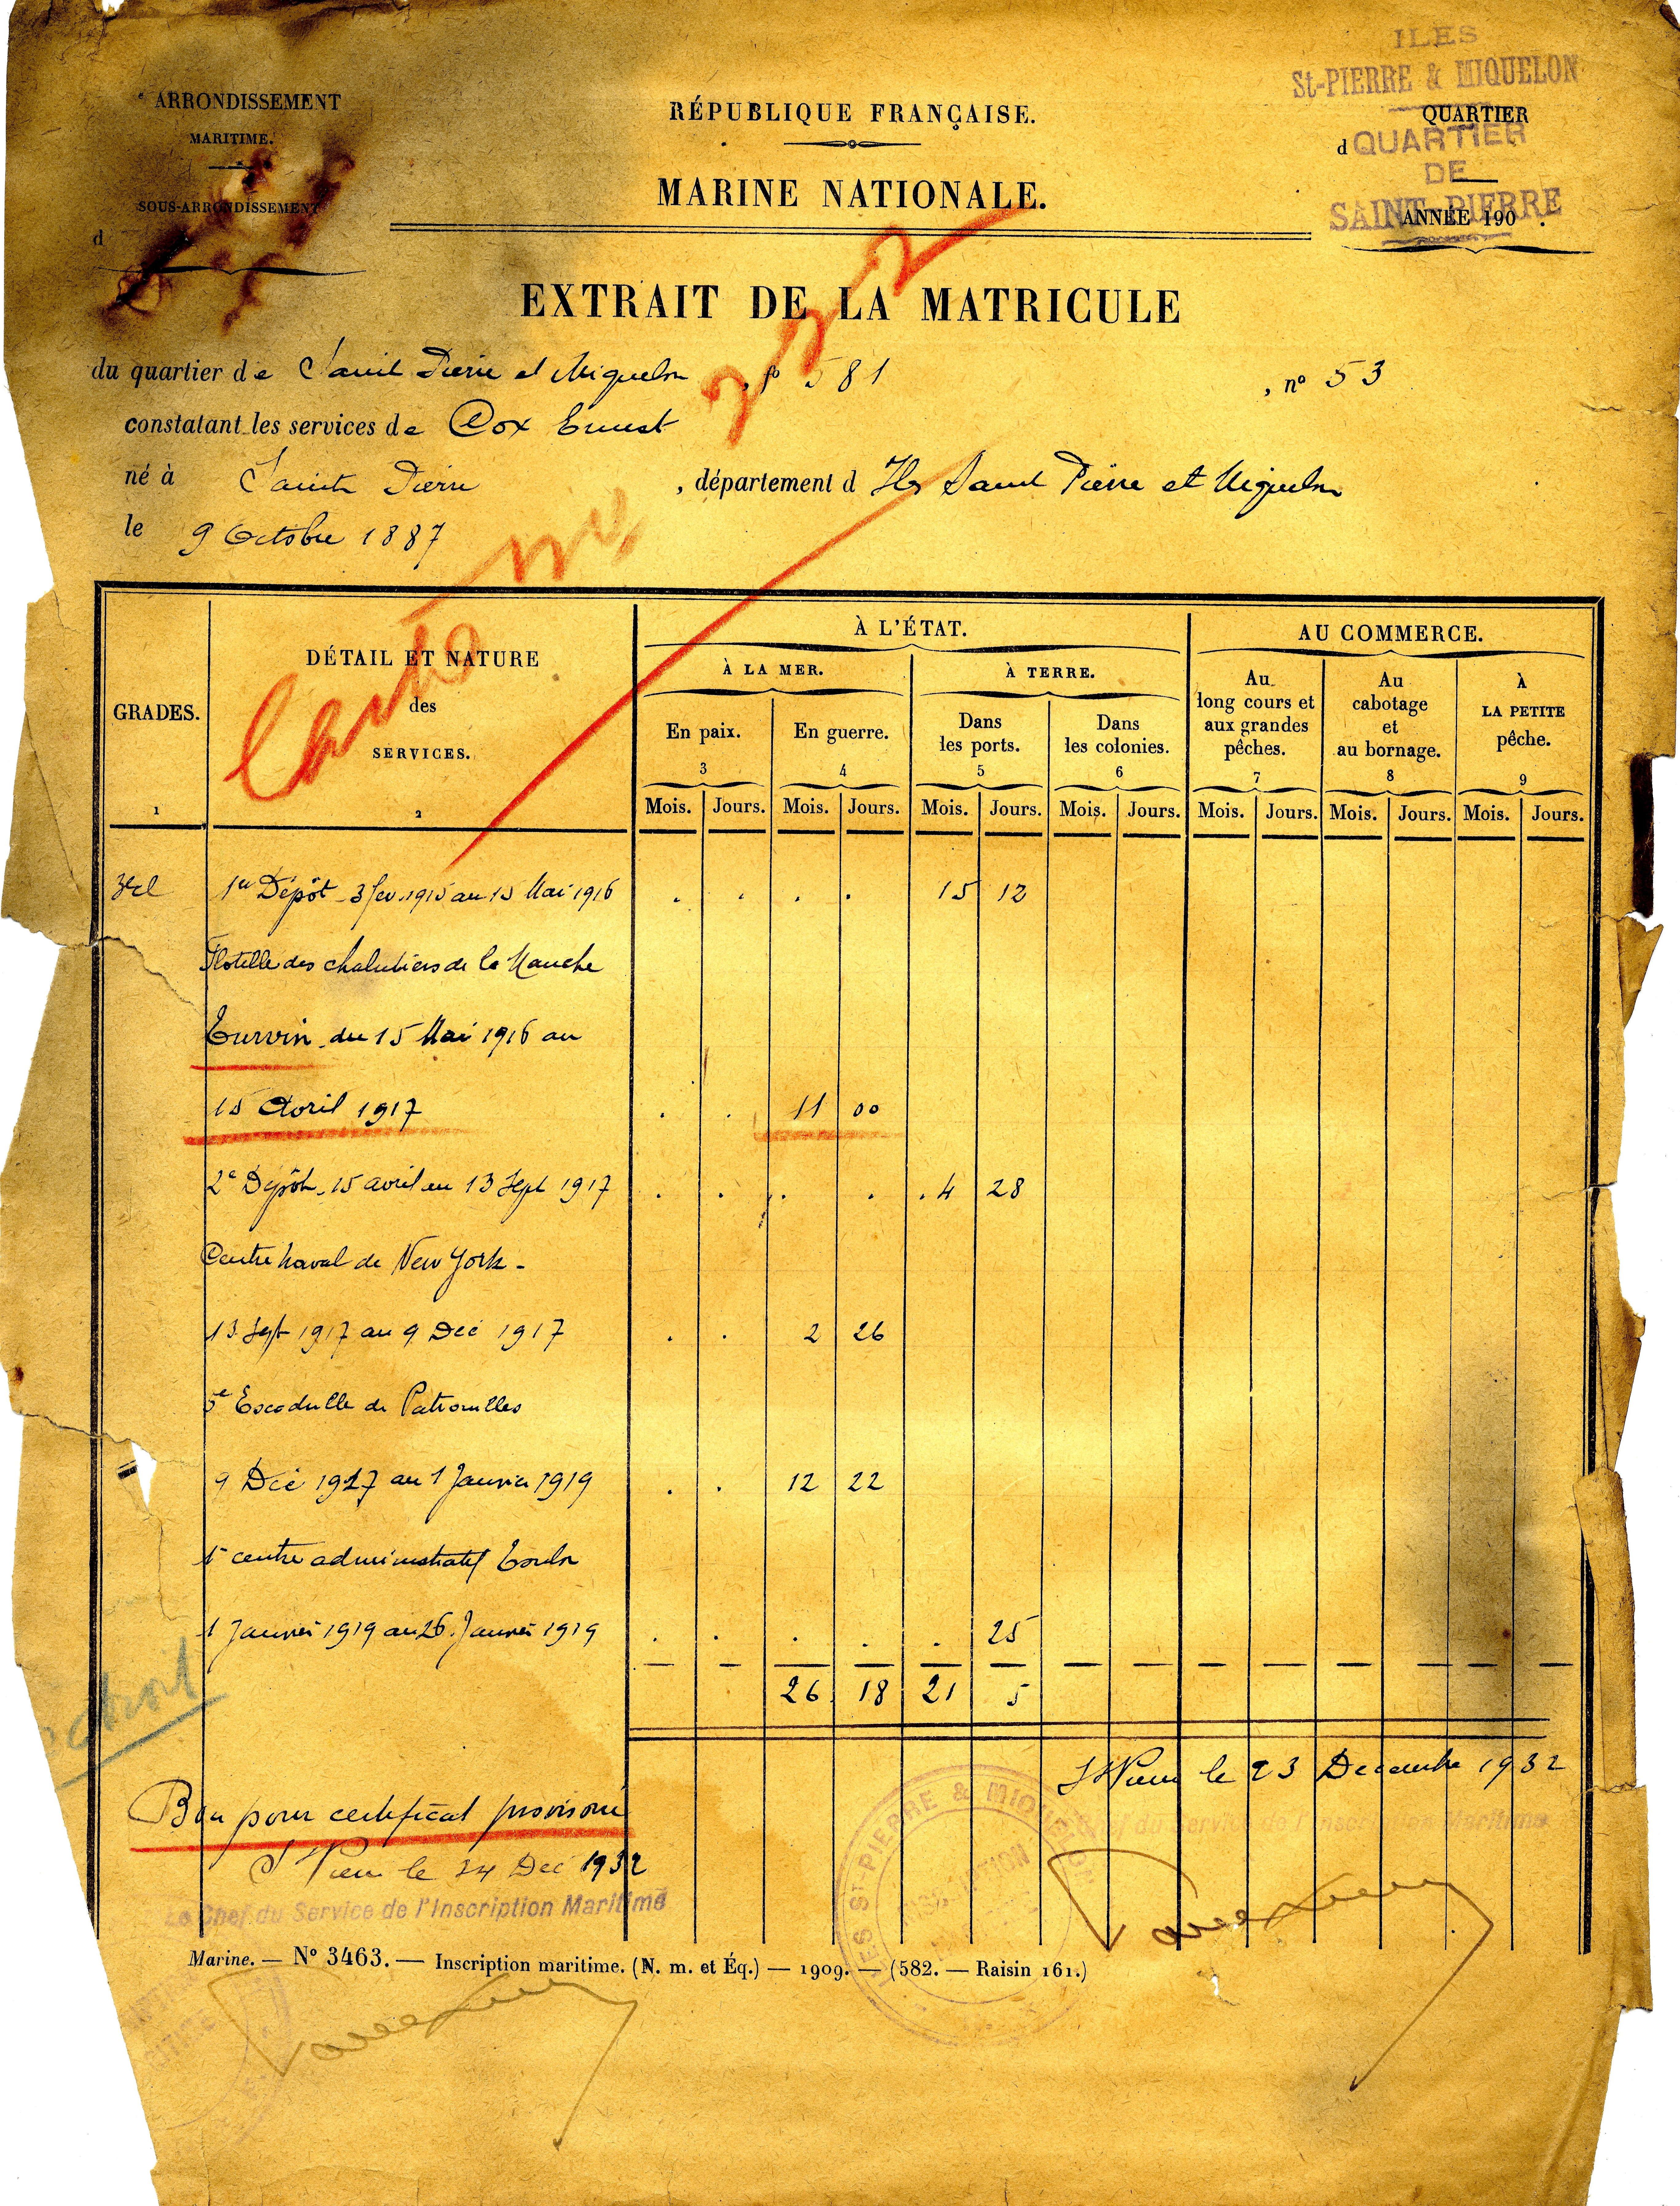 ARRONDISSEMENT
MARITIME.
SOUS-ARRONDISSEMENT
d
RÉPUBLIQUE FRANÇAISE.
MARINE NATIONALE.
ILES
St-PIERRE & MIQUELON
QUARTIER
d
QUARTIER
DE
SAINT-PIERRE
ANNÉE 190 .
EXTRAIT DE LA MATRICULE
du quartier de Saint Pierre et Miquelon, fo 581, no 53
constatant les services de Cox Ernest
né à Saint Pierre, département d Iles Saint Pierre et Miquelon
le 9 Octobre 1887
GRADES.
1
DÉTAIL ET NATURE
des
SERVICES.
2
À L'ÉTAT.
AU COMMERCE.
À LA MER.
À TERRE.
En paix.
3
En guerre.
4
Dans
les ports.
5
Dans
les colonies.
6
Au
long cours et
aux grandes
pêches.
7
Au
cabotage
et
au bornage.
8
À
LA PETITE
pêche.
9
Mois. Jours. Mois. Jours. Mois. Jours. Mois. Jours. Mois. Jours. Mois. Jours. Mois. Jours.
1er Dépôt 3 fev. 1915 au 15 Mai 1916 15 12
Flotille des chalutiers de la Manche
du 15 Mai 1916 au
15 Avril 1917 11 00
2e Dépôt, 15 avril au 13 Sept 1917 4 28
Centre naval de New York -
13 Sept 1917 au 9 Dec 1917 2 26
5e Escadrille de Patrouilles
9 Dec 1917 au 1 Janvier 1919 12 22
centre administratif Toulon
1 Janvier 1919 au 26 Janvier 1919 25
26 18 21 5
St Pierre le 23 Decembre 1932
Chef du Service de l'Inscription Maritime
Bon pour certificat provisoire
St Pierre le 24 Dec 1932
Le Chef du Service de l'Inscription Maritime
ILES ST-PIERRE & MIQUELON
INSCRIPTION
Marine. — No 3463. — Inscription maritime. (N. m. et Éq.) — 1909. — (582. — Raisin 161.)